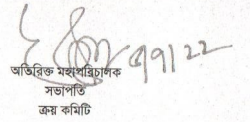 অতিরিক্ত মহাপরিচালক
সভাপতি
ক্রয় কমিটি